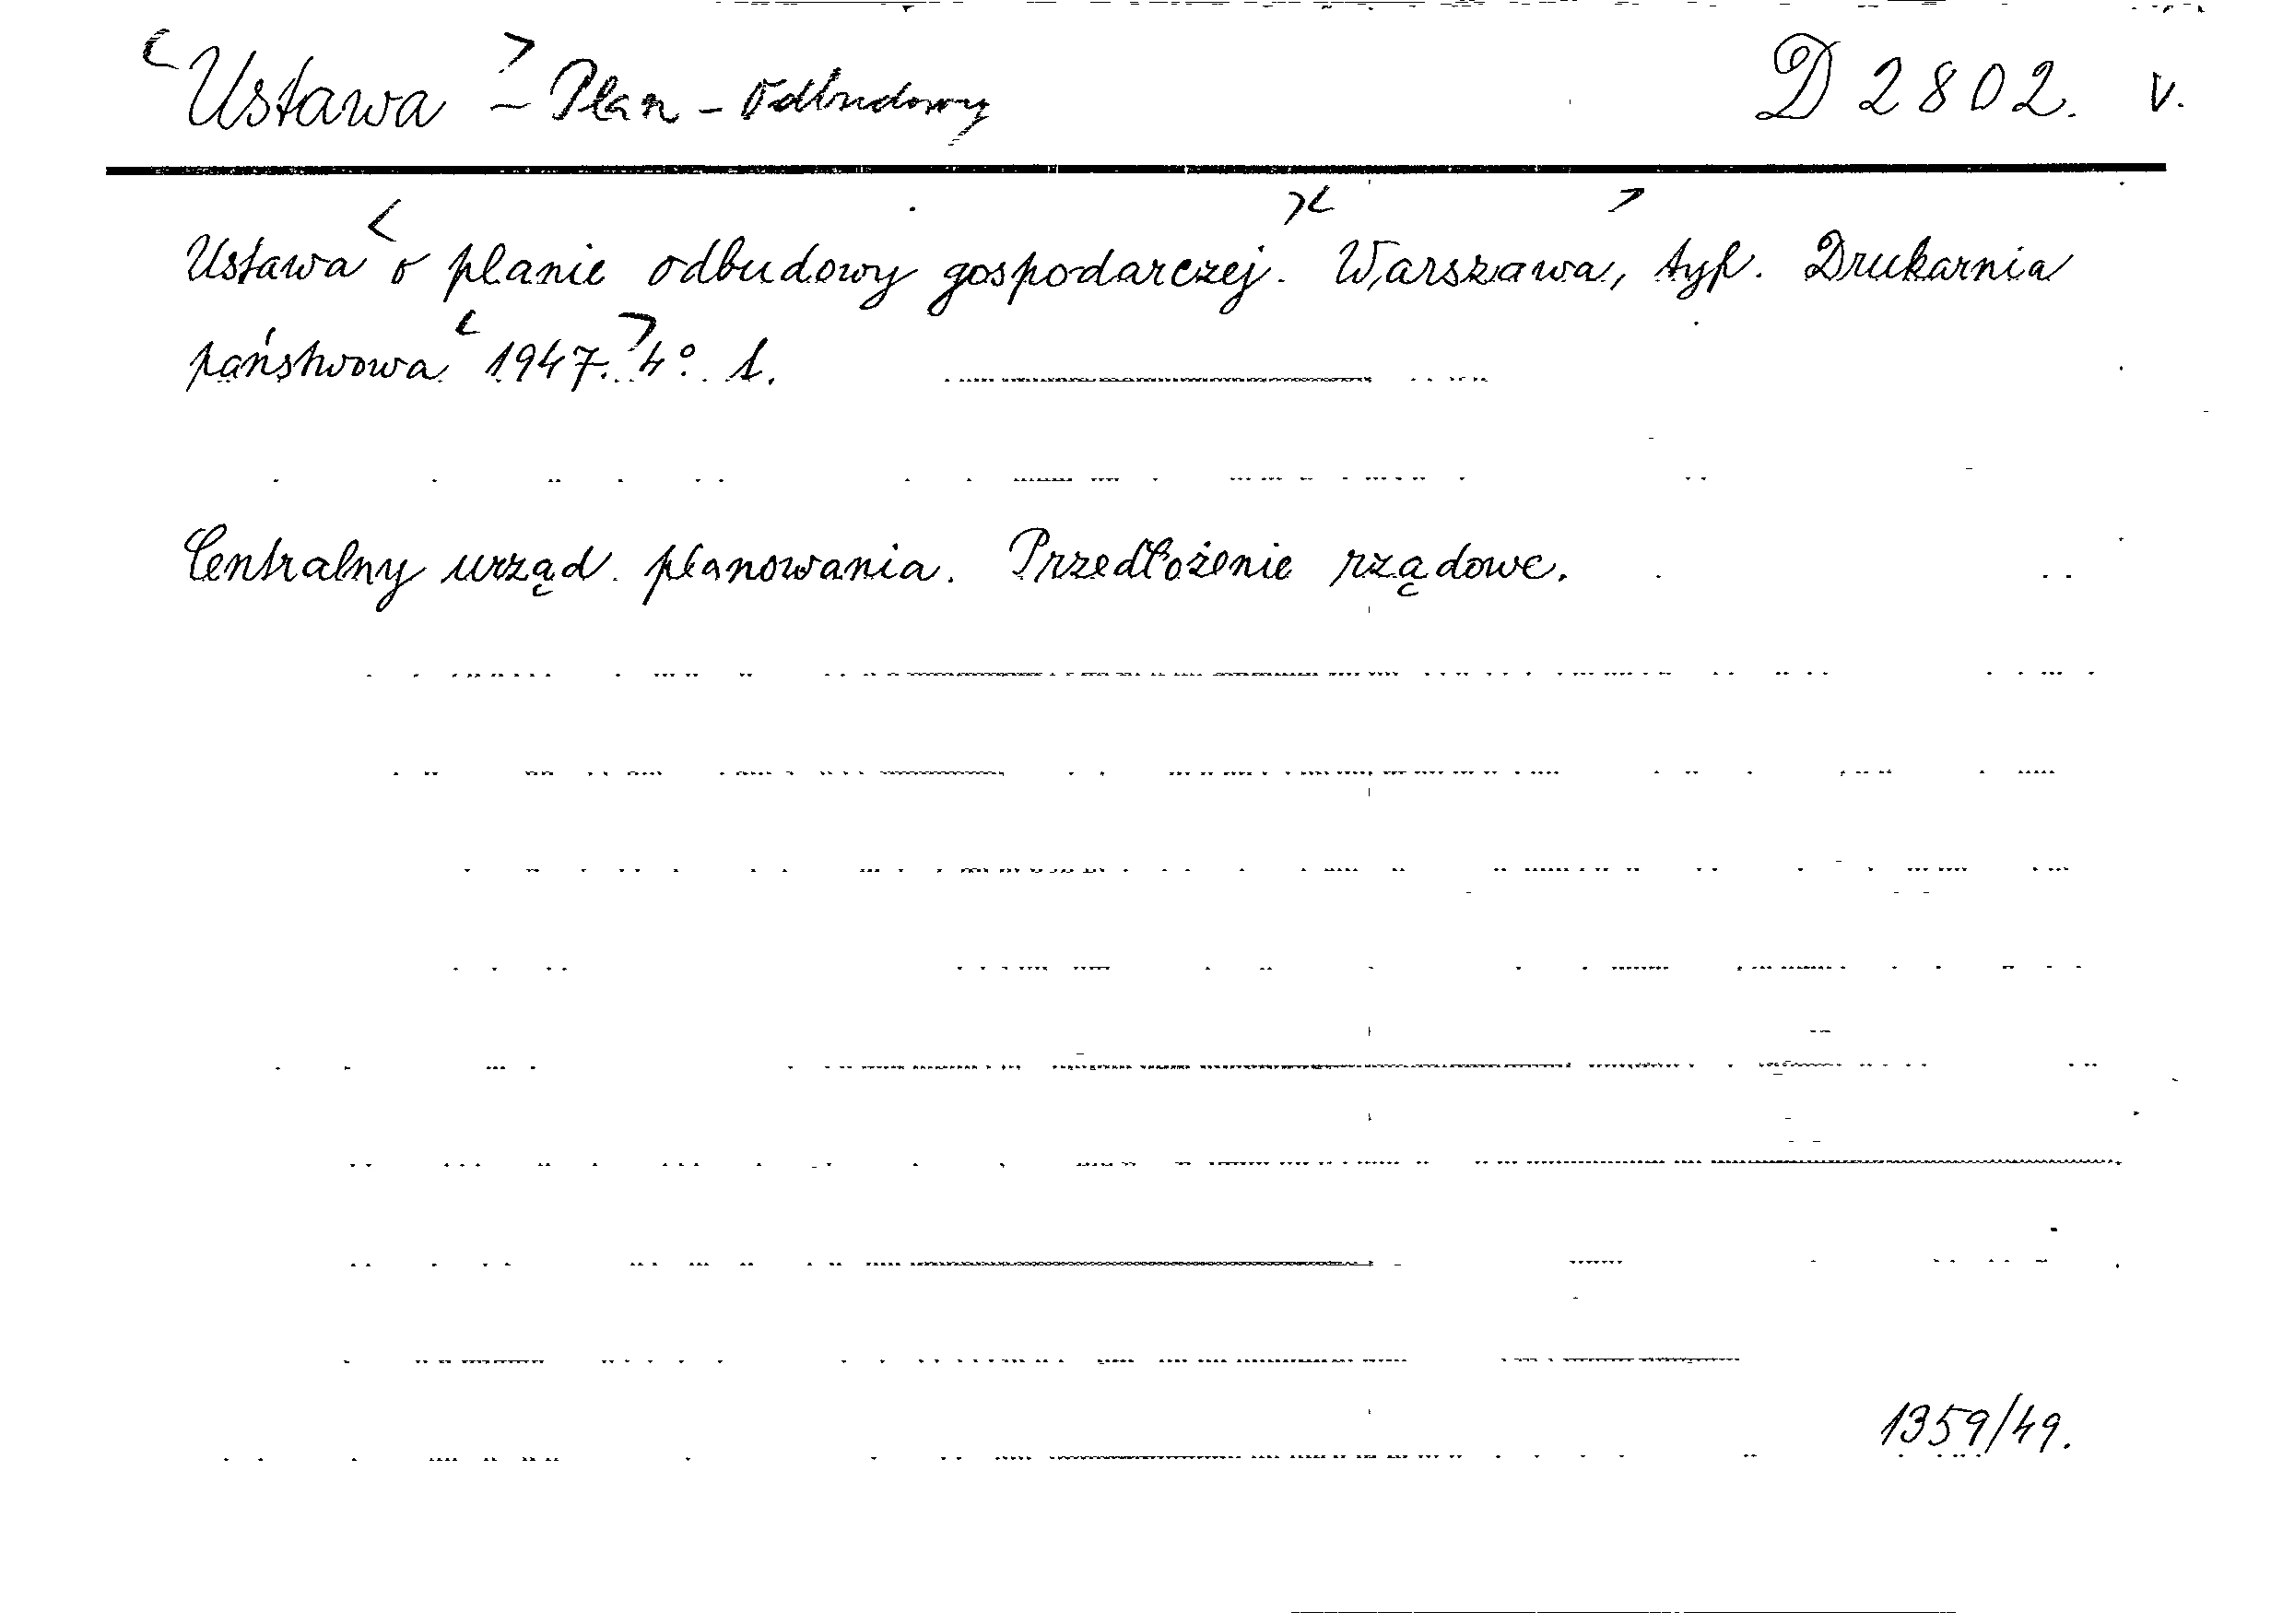 <Ustawa> - Plan - Odbudowy D 2802. V.
Ustawa <o planie odbudowy gospodarczej.> <Warszawa,> typ. Drukarnia
państwowa <1947.> 4° 1.
Centralny urząd planowania. Przedłożenie rządowe.
1359/49.